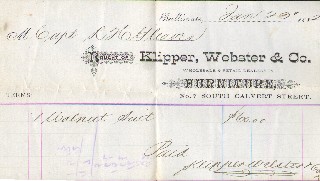 Baltimore,
M Capt
BOUGHT OF Klipper, Webster & Co.
WHOLESALE & RETAIL DEALERS IN
FURNITURE,
No. 7 SOUTH CALVERT STREET.
TERMS
1 Walnut Suit
Paid
Klipper Webster & Co